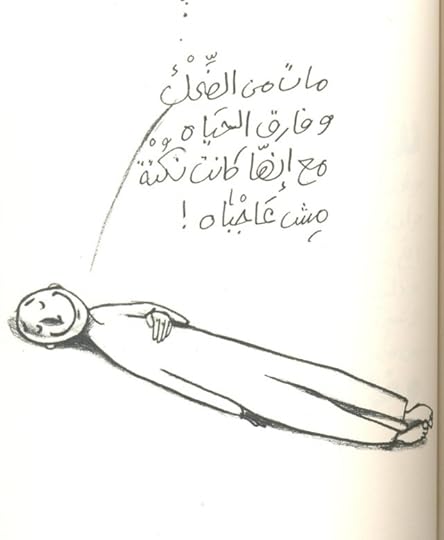 مات من الضِّحْكْ
وفارق الحَيَاه
مع إنَّها كانت نُكْتَة
مِش عَاجْبَاه !